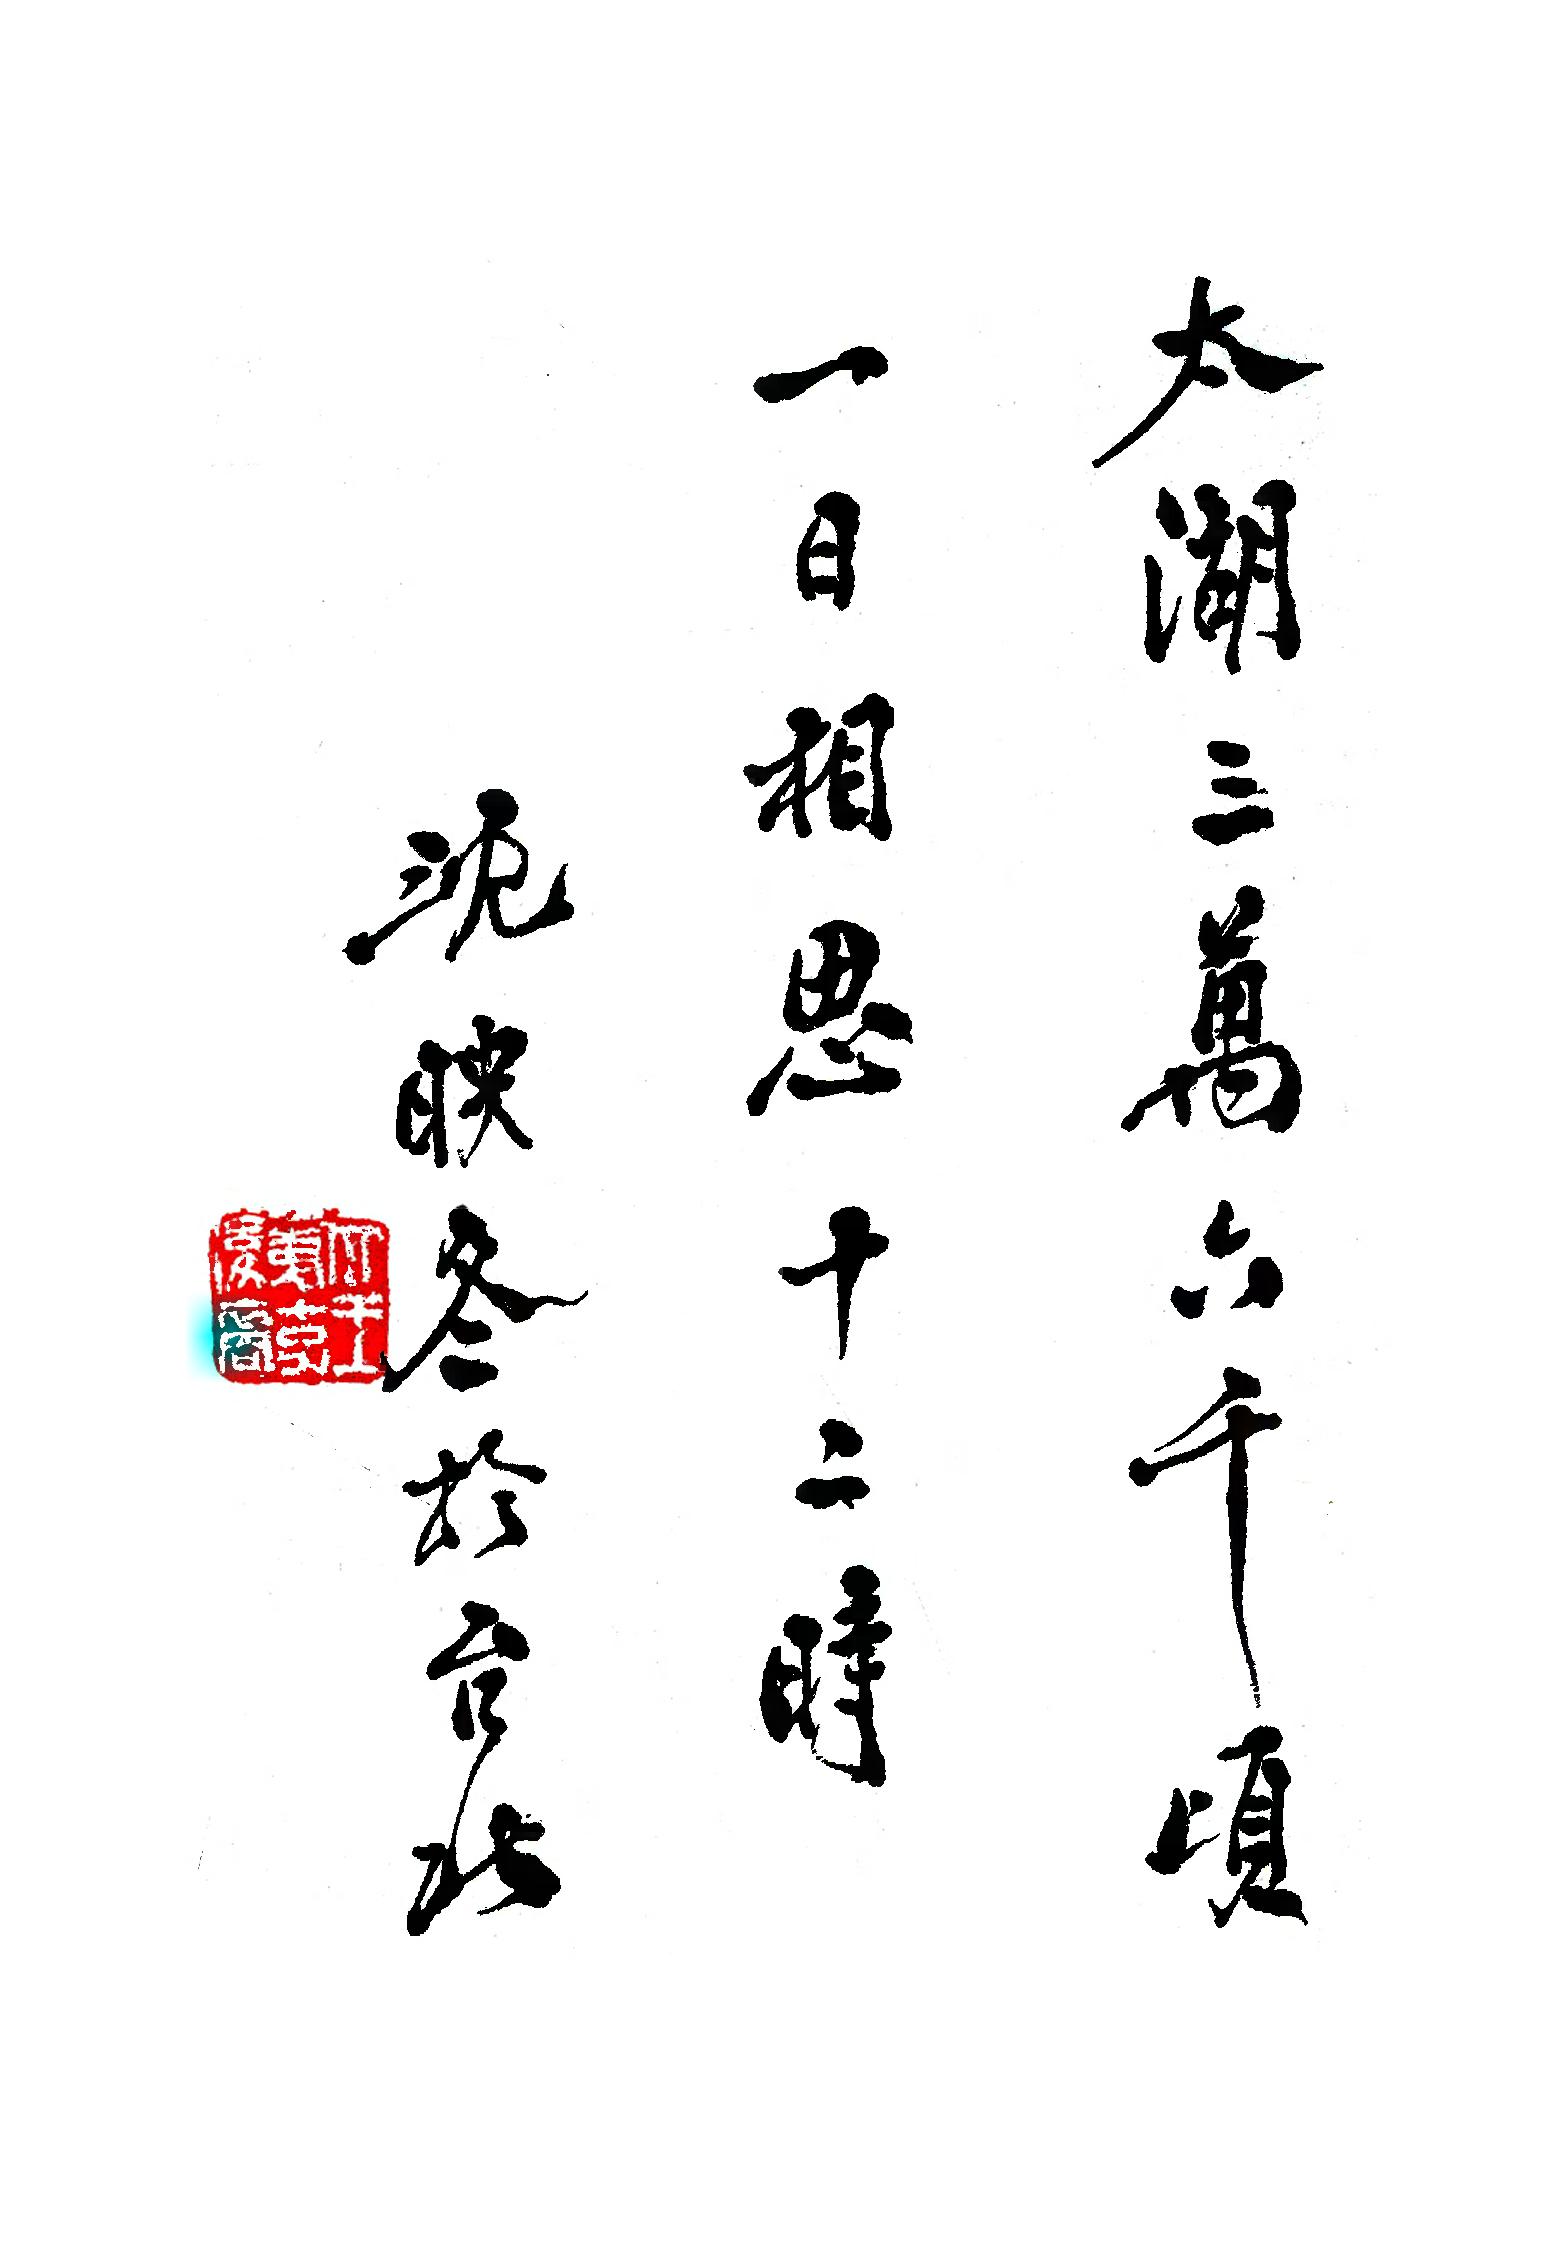 太湖三萬六千頃
一日相思十二時
沈映冬於台北